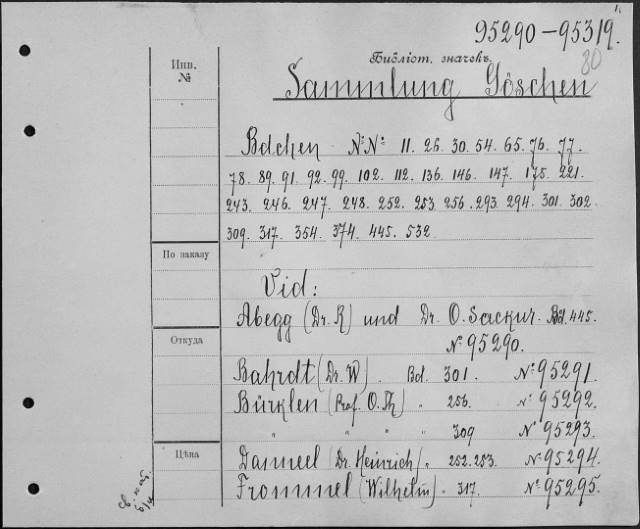 95290-95319.
80
Инв.
№
Библіот. значекъ
Sammlung Göschen
Bdchen №№ 11. 26. 30. 54. 65. 76. 77.
78. 89. 91. 92. 99. 102. 112. 136. 146. 147. 175. 221.
243. 246. 247. 248. 252. 253. 256. 293. 294. 301. 302.
309. 317. 354. 374. 445. 532.
По заказу
Vid:
Abegg (Dr. R) und Dr. O. Sackur. Bd. 445.
Откуда
№ 95290.
Bahrdt (Dr. W). Bd. 301. № 95291.
Bürklen (Prof. O. Th) „ 256. № 95292.
„ „ „ 309 № 95293.
Цѣна
Danneel (Dr. Heinrich) „ 252. 253. № 95294.
Frommel (Wilhelm) „ 317. № 95295.